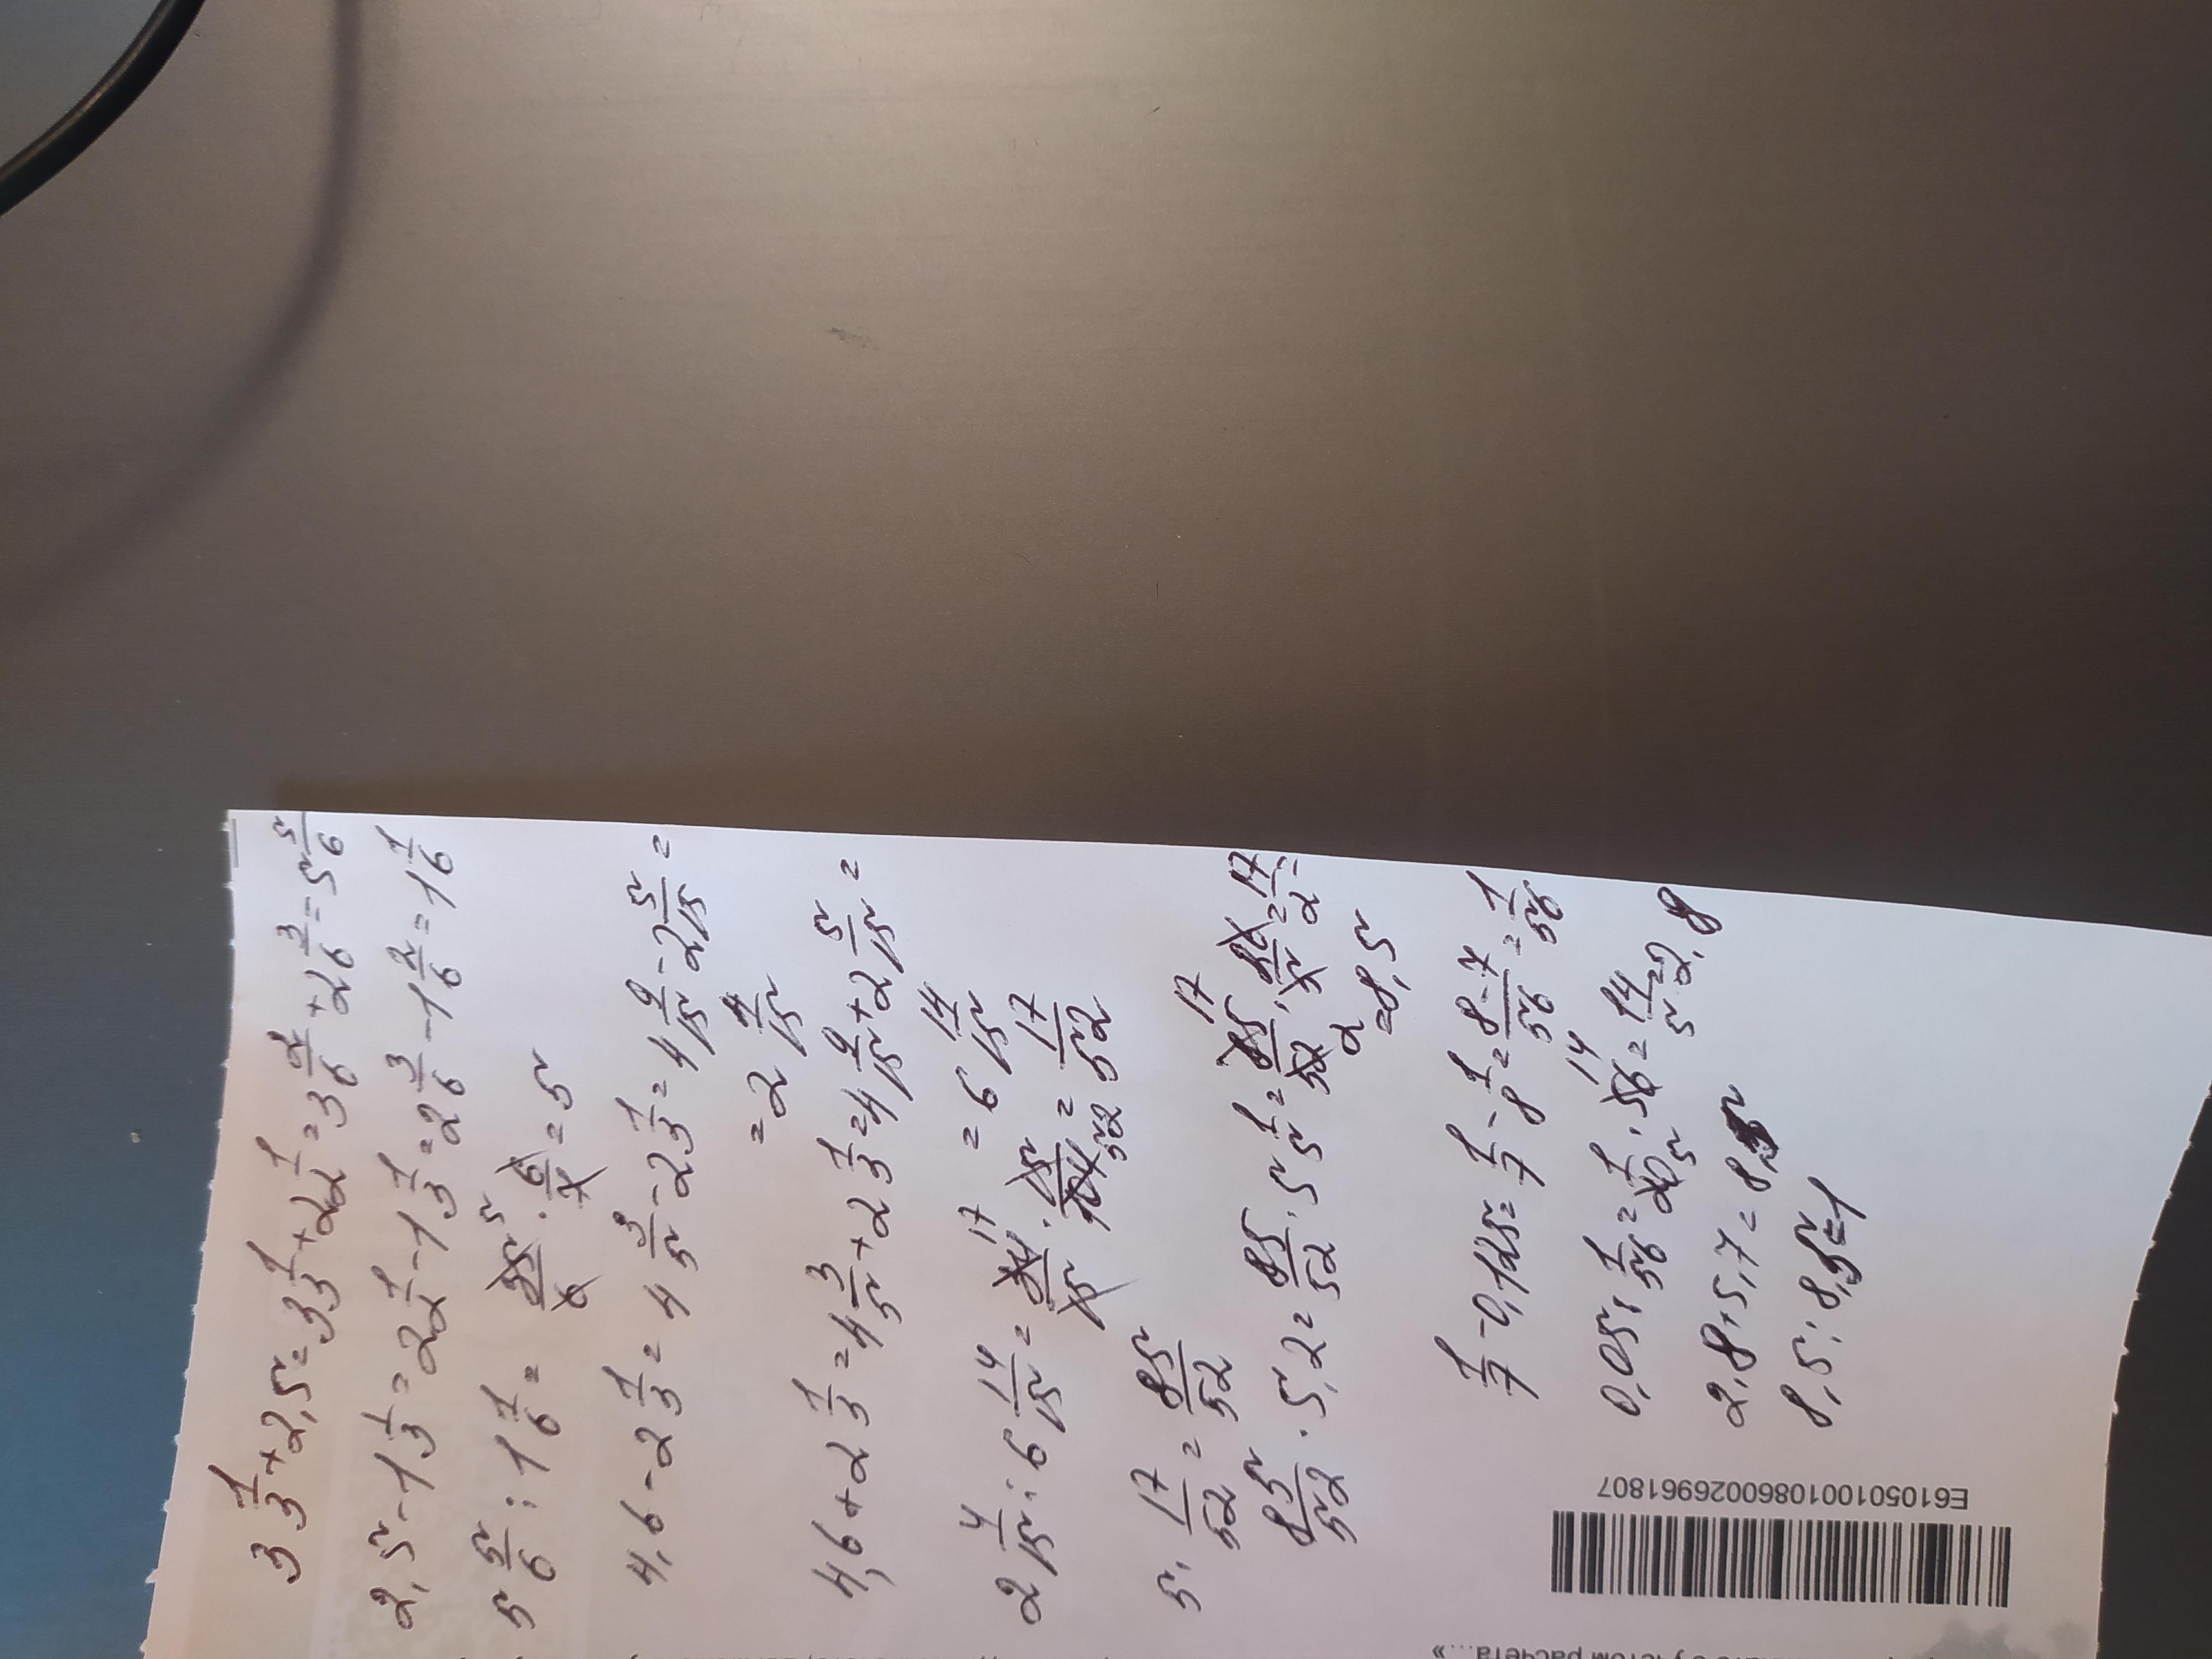 3 1/3 + 2,5 = 3 1/3 + 2 1/2 = 3 2/6 + 2 3/6 = 5 5/6
2,5 - 1 1/3 = 2 1/2 - 1 1/3 = 2 3/6 - 1 2/6 = 1 1/6
5 5/6 : 1 1/6 = 35/6 · 6/7 = 5
5
4,6 - 2 1/3 = 4 3/5 - 2 1/3 = 4 9/15 - 2 5/15 =
= 2 4/15
4,6 + 2 1/3 = 4 3/5 + 2 1/3 = 4 9/15 + 2 5/15 =
= 6 14/15
2 4/15 : 6 14/15 = 34/15 · 15/104 = 17/52
17
52
5 · 17/52 = 85/52
85/52 · 5,2 = 85/52 · 5 1/5 = 85/52 · 26/5 = 17/2 =
17
2
= 8,5
1/7 - 0,125 = 1/7 - 1/8 = 8-7/56 = 1/56
0,05 : 1/56 = 1/20 · 56 = 14/5 = 2,8
14
5
2,8 + 5,7 = 8,5
8,5 : 8,5 = 1
E61050100108600026961807